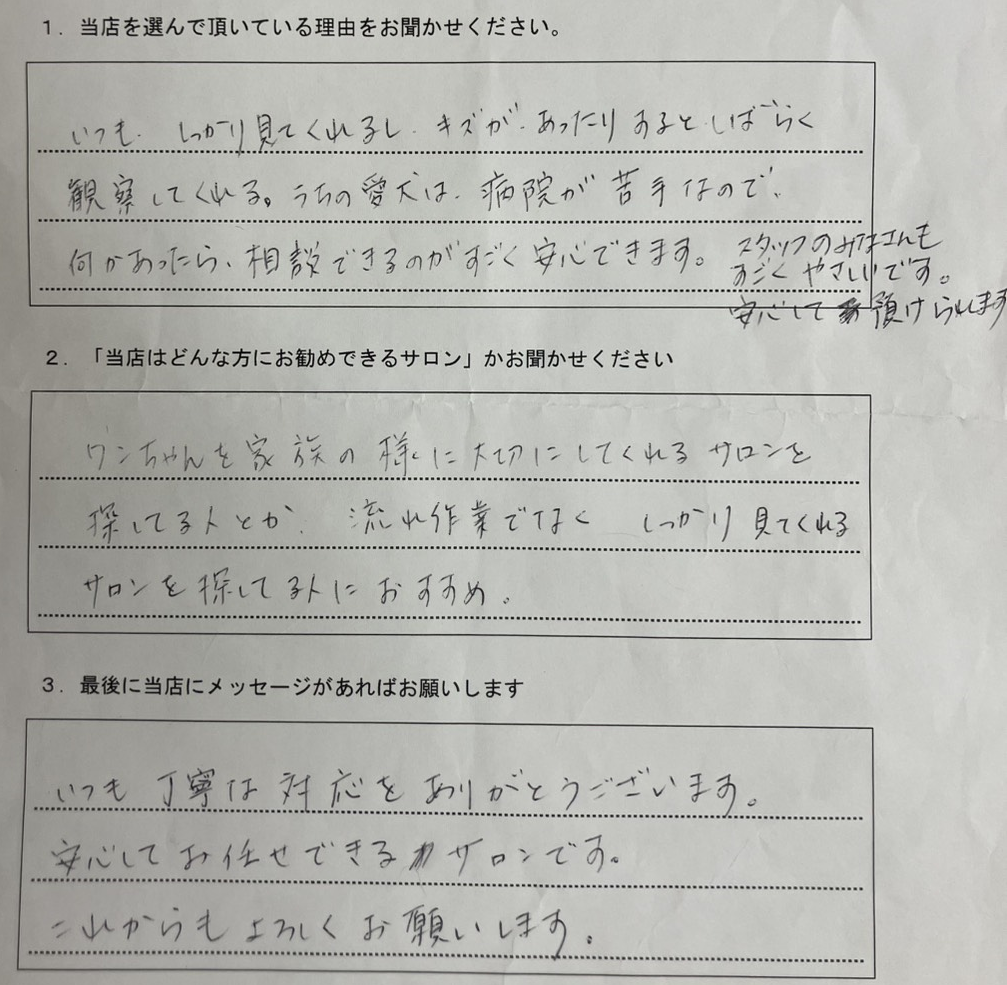 １．当店を選んで頂いている理由をお聞かせください。
いつも、しっかり見てくれるし、キズが、あったりするとしばらく
観察してくれる。うちの愛犬は、病院が苦手なので、
何かあったら、相談できるのがすごく安心できます。
スタッフのみなさんも
すごくやさしいです。
安心して預けられます
２．「当店はどんな方にお勧めできるサロン」かお聞かせください
ワンちゃんを家族の様に大切にしてくれるサロンを
探してる人とか、流れ作業でなく　しっかり見てくれる
サロンを探してる人におすすめ。
３．最後に当店にメッセージがあればお願いします
いつも丁寧な対応をありがとうございます。
安心してお任せできるサロンです。
これからもよろしくお願いします。